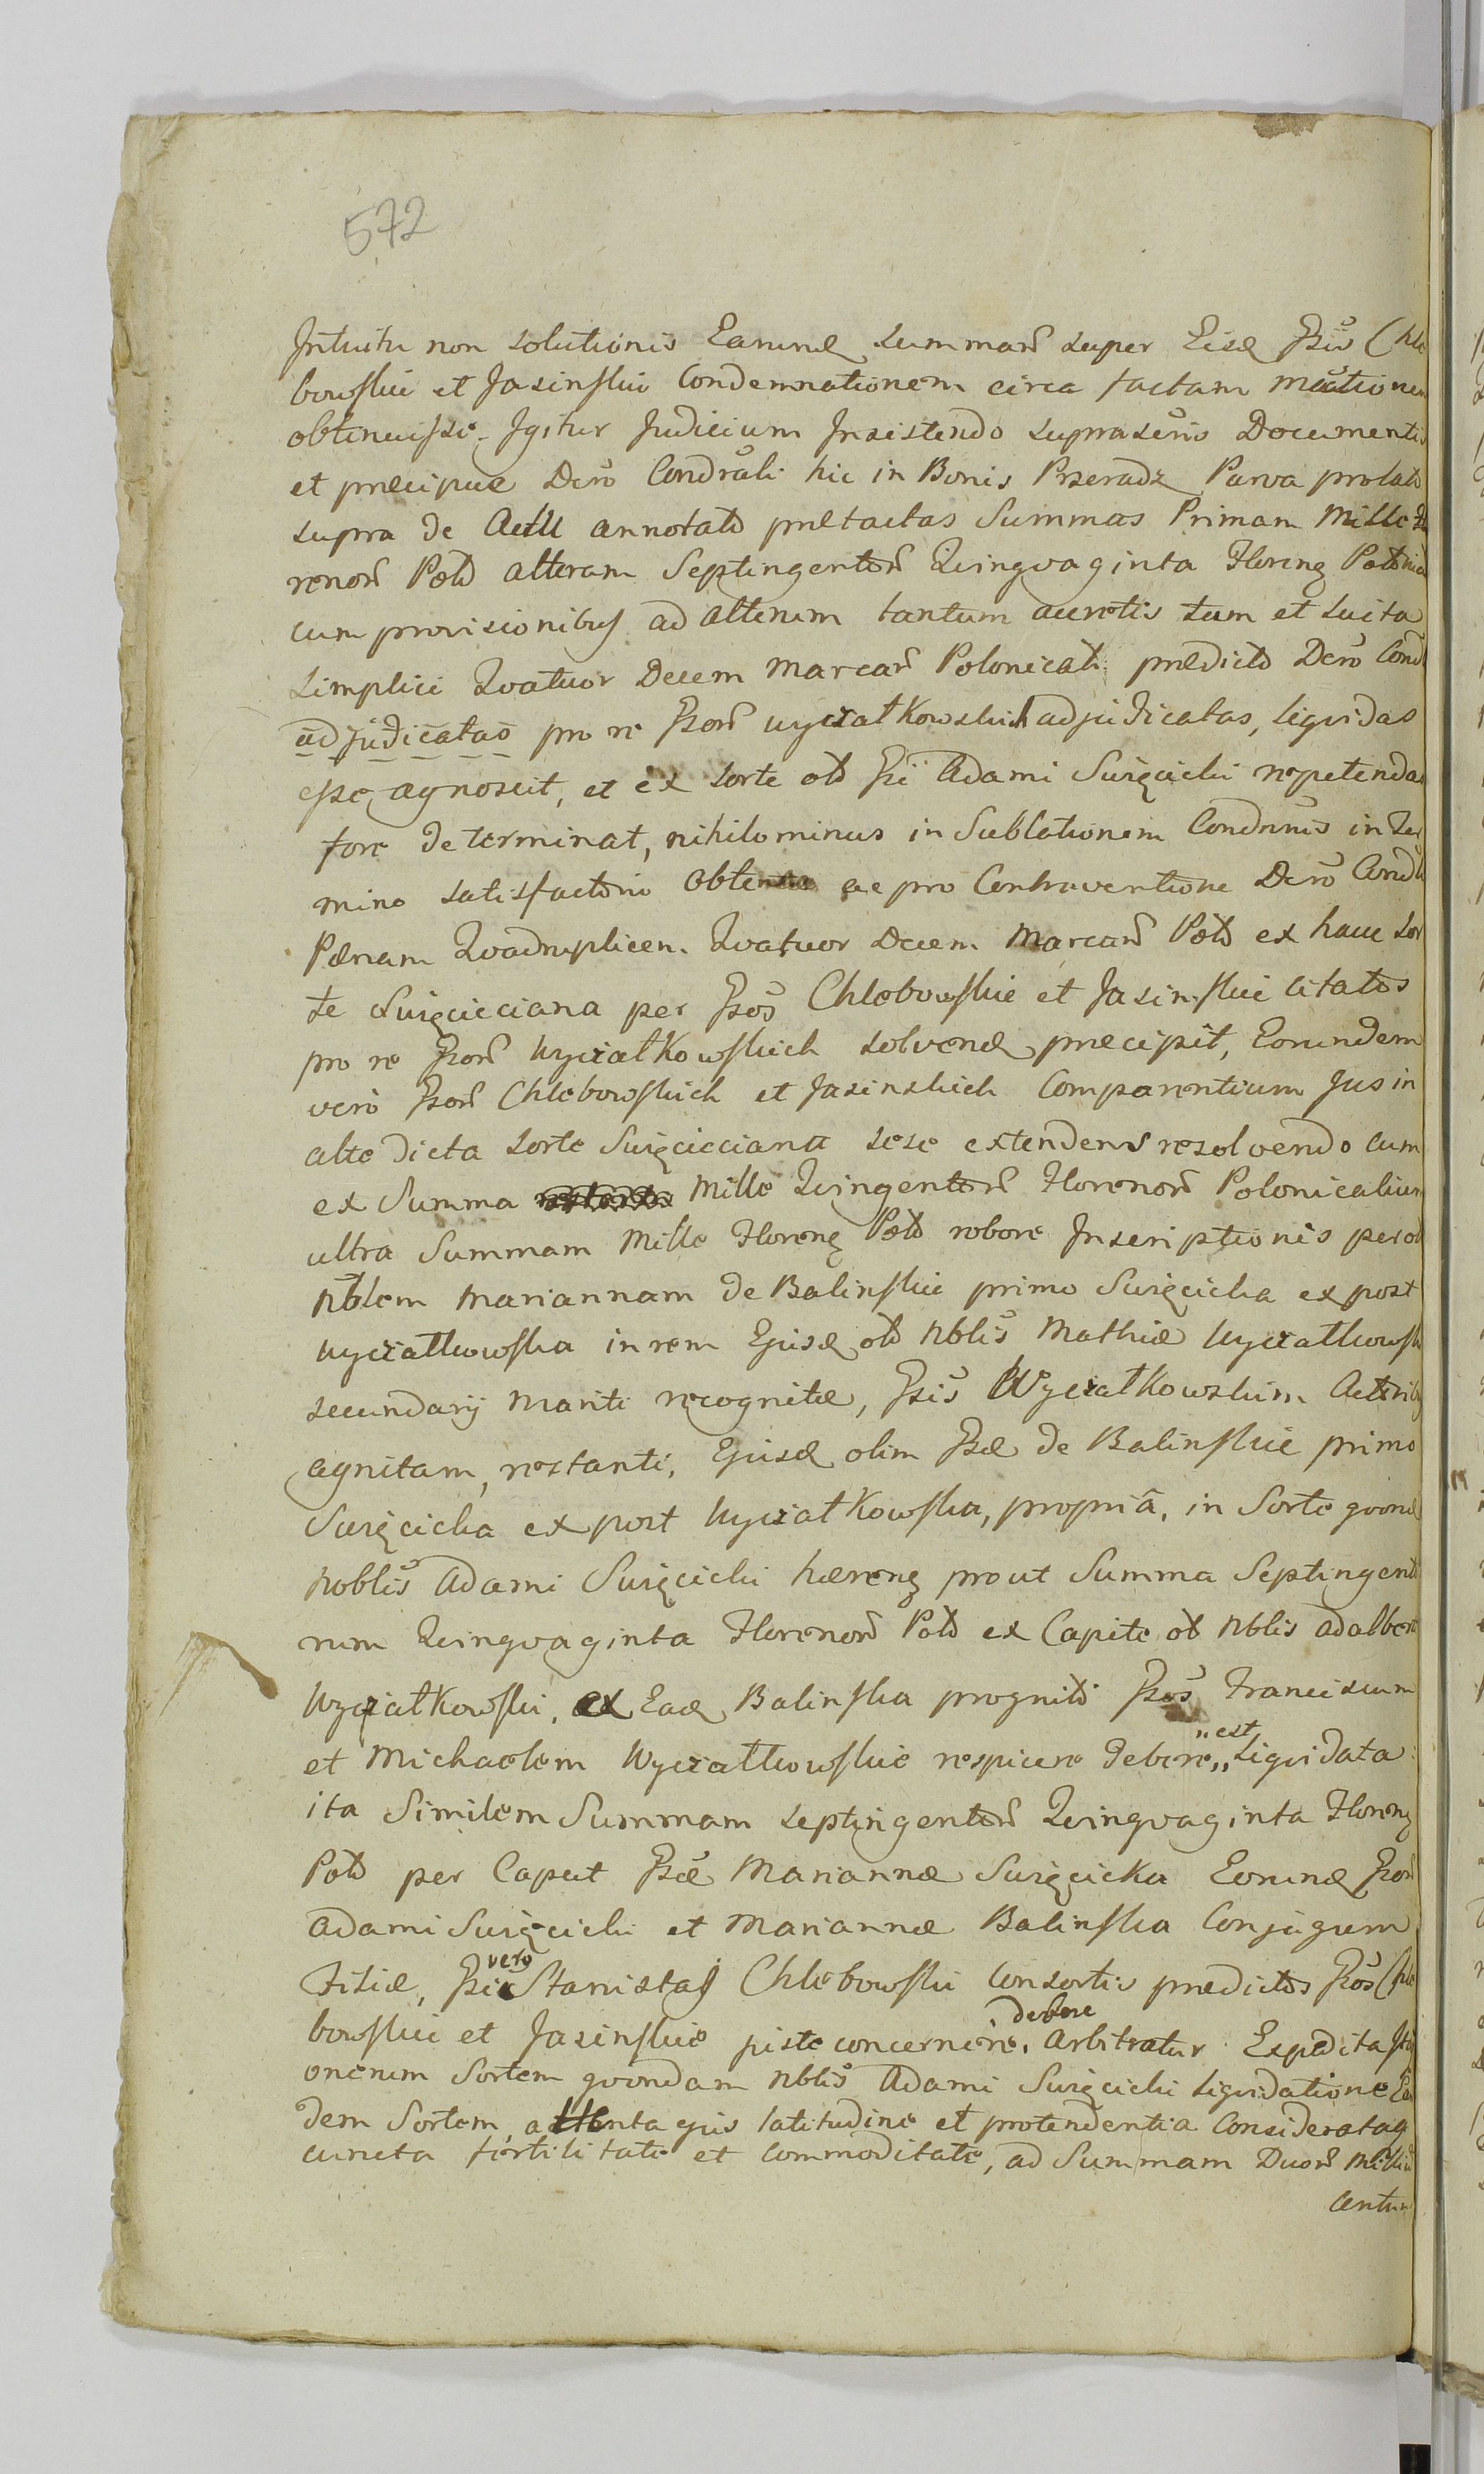 572
Intuitu non solutionis Earund summarū super Eisd Gsis Chle
bowskie et Jasinskie Condemnationem circa factam motionem
obtinuisse. Igitur Judicium Insistendo suprascris Documentis
et præcipue Dcro Condrali hic in Bonis Przeradz Parva prolato
supra de Actu annotato prætactas Summas Primam Mille Flo
renorū Pol alteram Septingentorū Quingvaginta Floreng Polonica
cum provisionibus ad alterum tantum accretis tum et Lucta
simplici Qvatuor Decem Marcarū Polonicali prædicto Dcro Cond
adjudicatas pro re Gsorū Wyczałkowskich adjudicatas, liqvidas
esse agnoscit, et ex sorte ol Gsi Adami Swięcicki repetendas
fore determinat, nihilominus in Sublationem Condnnis in Ter
mino satisfactorio obtenta ac pro Contraventione Dcro Condli
Pænam Qvadruplicem Qvatuor Decem Marcarū Pol ex hacce Sor
te Swięcicciana per Gsos Chlebowskie et Jasinskie citatos
pro re Gsorū Wyczałkowskich solvend præcipit, Eorundem
vero Gsorū Chlebowskich et Jasinskich Comparentium Jus in
alte dicta sorte Swięcicciana sese extendens resolvendo cum
ex Summa Mille Qvingentorū Florenorū Polonicalium
ultra Summam Mille Floreng Pol robore Inscriptionis per ol
Nblem Mariannam de Balinskie primo Swięcicka ex post
Wyczałkowska in rem Ejusd ol Nblis Mathiæ Wyczałkowski
secundarij mariti recognitæ, Gsis Wyczałkowskim Actoribg
agnitam, restanti, Ejusd olim Gsæ de Balinskie primo
Swięcicka ex post Wyczałkowska, propriâ, in Sorte qvond
Noblis Adami Swięcicki hæreng prout Summa Septingento
rum Qvingvaginta Florenorū Pol ex Capite ol Nblis Adalberti
Wyczałkowski, ex Ead Balinska progniti Gsos Franciscum
et Michaelem Wyczałkowskie respicere debere,, ,,est liqvidata
ita Similem Summam septingentorū Qvingvaginta Floreng
Pol per Caput Gsæ Mariannæ Swięcicka Eorund Gsorū
Adami Swięcicki et Mariannæ Balinska Conjugum
Filiæ, Gsi vero Stanislai Chlebowski Consortis prædictos Gsos Chle
bowskie et Jasinskie juste concernere debere arbitratur. Expedita
onerum Sortem qvondam Nblis Adami Swięcicki liqvidatione Ean
dem Sortem, attenta ejus latitudine et protendentia Considerataq
cuncta fertilitate et commoditate, ad Summam Duorū Milliū
Centum